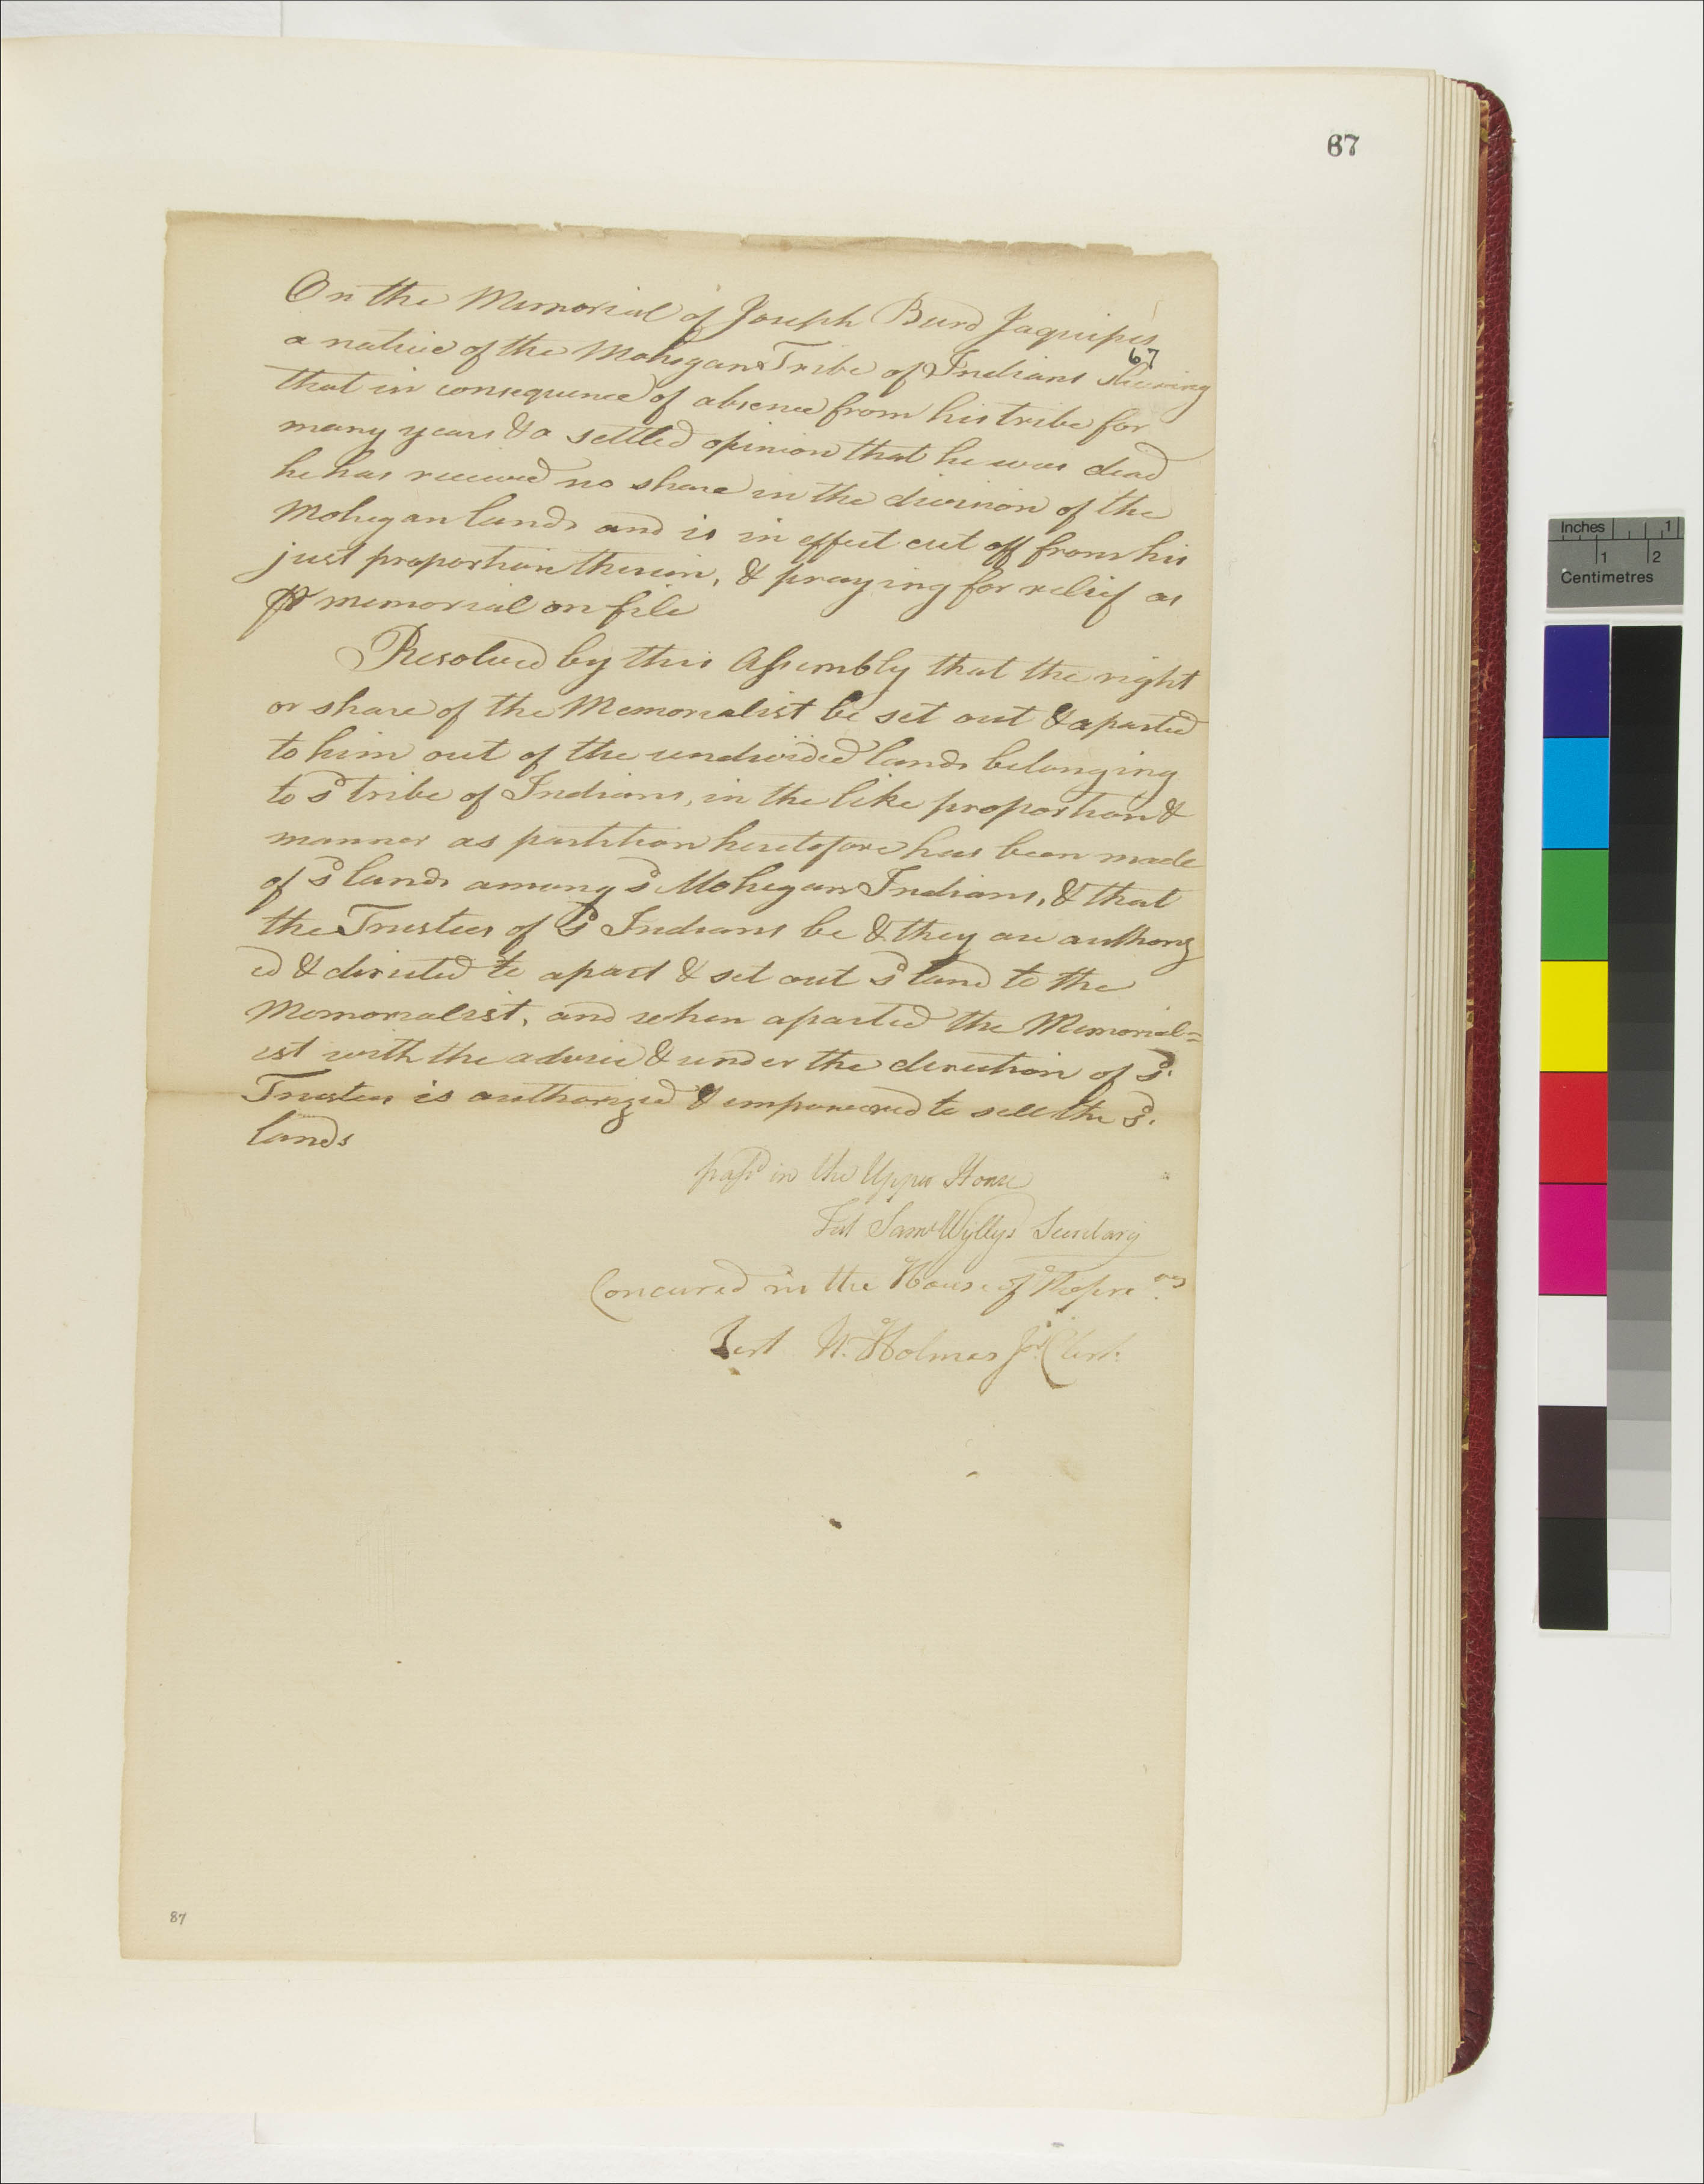 67
On the Memorial of Joseph Burd Jaquipes
67
a native of the Mohegan Tribe of Indians Shewing
that in consequence of absence from his tribe for
many years & a settled opinion that he was dead
he has received no share in the division of the
Mohegan lands and is in effect cut off from his
just proportion therein, & praying for relief as
pr memorial on file
Resolved by this Assembly that the right
or share of the Memorialist be set out & aparted
to him out of the undivided lands belonging
to sd tribe of Indians, in the like proportion &
manner as partition heretofore has been made
of sd lands among sd Mohegan Indians, & that
the Trustees of sd Indians be & they are authoriz
ed & directed to apart & set out sd land to the
Memorialist, and when aparted the Memorial=
ist with the advice & under the direction of sd.
Trustees is authorized & empowered to sell the sd.
lands
passd in the Upper House
Test Saml Wyllys Secretary
Concured in the House of Repre.ves
Test U. Holmes Jr. Clerk
87
Inches 1
1 2
Centimetres